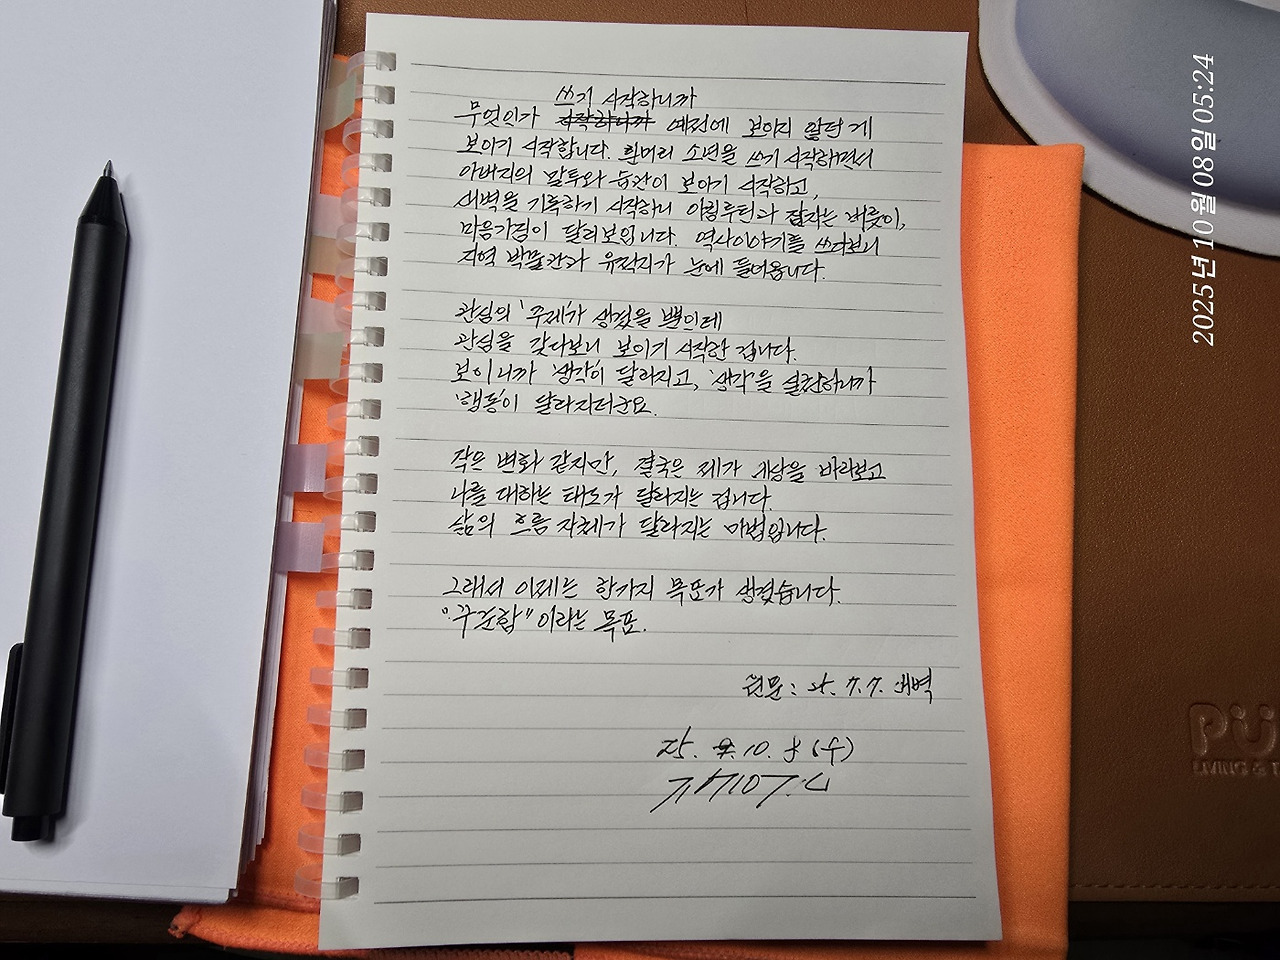 쓰기 시작하니까
무엇인가 시작하니까 예전에 보이지 않던 게
보이기 시작합니다. 흰머리 소년을 쓰기 시작하면서
아버지의 말투와 습관이 보이기 시작하고,
새벽을 기록하기 시작하니 아침루틴과 잠자는 버릇이,
마음가짐이 달리보입니다. 역사이야기를 쓰다보니
지역 박물관과 유적지가 눈에 들어옵니다.
관심의 '주제'가 생겼을 뿐인데
관심을 갖다보니 보이기 시작한 겁니다.
보이니까 '생각'이 달라지고, '생각'을 실천하니까
'행동'이 달라지더군요.
작은 변화 같지만, 결국은 제가 세상을 바라보고
나를 대하는 태도가 달라지는 겁니다.
삶의 흐름 자체가 달라지는 마법입니다.
그래서 이제는 한가지 목표가 생겼습니다.
"꾸준함"이라는 목표.
원문: 25. 7. 7. 새벽
25. 10. 8 (수)
2025년 10월 08일 05:24